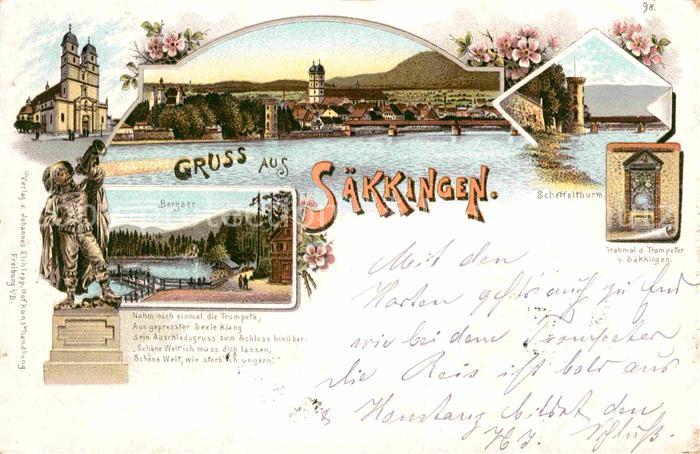 98.
GRUSS AUS
SÄKKINGEN.
Scheffelthurm.
Grabmal d. Trompeter
v. Säkkingen.
Bergsee
Verlag v. Johannes Elchlepp, Hofkunsthandlung,
Freiburg i/B.
Nahm noch einmal die Trompete,
Aus gepresster Seele klang
Sein Abschiedsgruss zum Schloss hinüber:
„Schöne Welt ich muss dich lassen,
Schöne Welt, wie sterb' ich ungern!"
Mit den
Karten geht's auch zu End
wie bei dem Trompeter
die Reis ist bald aus
& Konstanz bildet den
Schluß.